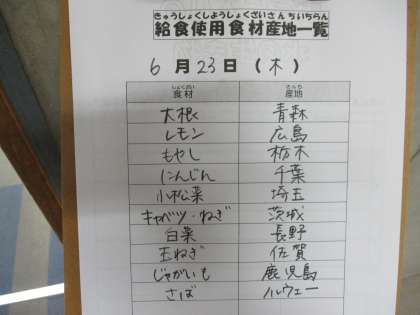 きゅうしょくしようしょくざいさんちいちらん
給食使用食材産地一覧
6月23日(木)
しょくざい さんち
食材 産地
大根 青森
レモン 広島
もやし 栃木
にんじん 千葉
小松菜 埼玉
キャベツ・ねぎ 茨城
白菜 長野
玉ねぎ 佐賀
じゃがいも 鹿児島
さば ノルウェー